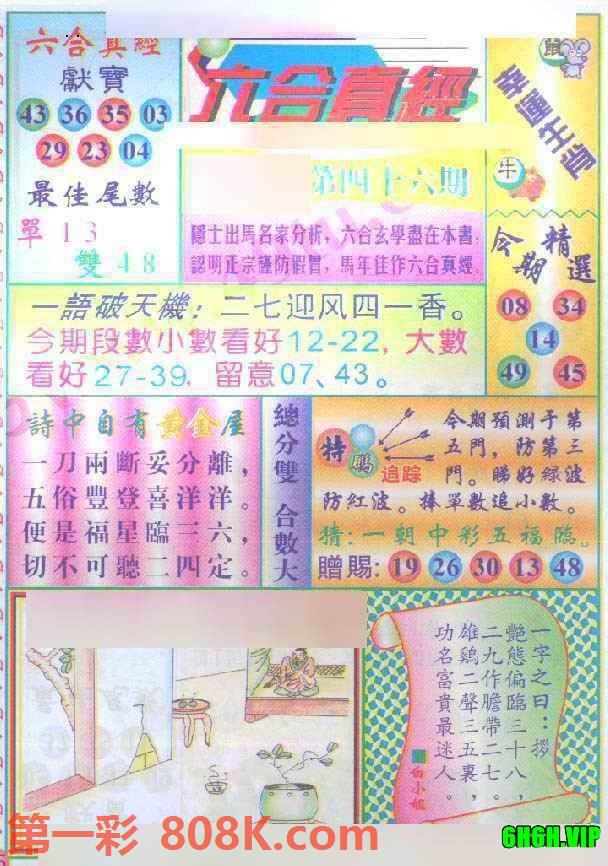 六合真經
獻寶
43 36 35 03
29 23 04
最佳尾數
單 1 3
雙 4 8
六合真經
第四十六期
隱士出馬名家分析，六合玄學盡在本書；
認明正宗謹防假冒，馬年佳作六合真經。
鼠
幸運生肖
牛
今期精選
08 34
14
49 45
一語破天機：二七迎风四一香。
今期段數小數看好12-22，大數
看好27-39，留意07、43。
詩中自有黃金屋
一刀兩斷妥分離，
五俗豐登喜洋洋。
便是福星臨三六，
切不可聽二四定。
總分雙 合數大
特
追踪
今期預測予第
五門，防第三
門。睇好緑波
防紅波。捧單數追小數。
猜：一朝中彩五福臨。
贈賜：19 26 30 13 48
一字之曰：拶
艷態偏臨三十八，
二九作膽帶二七。
雄鷄二聲三五裏，
功名富貴最迷人。
白小姐
第一彩 808K.com
6H6H.VIP